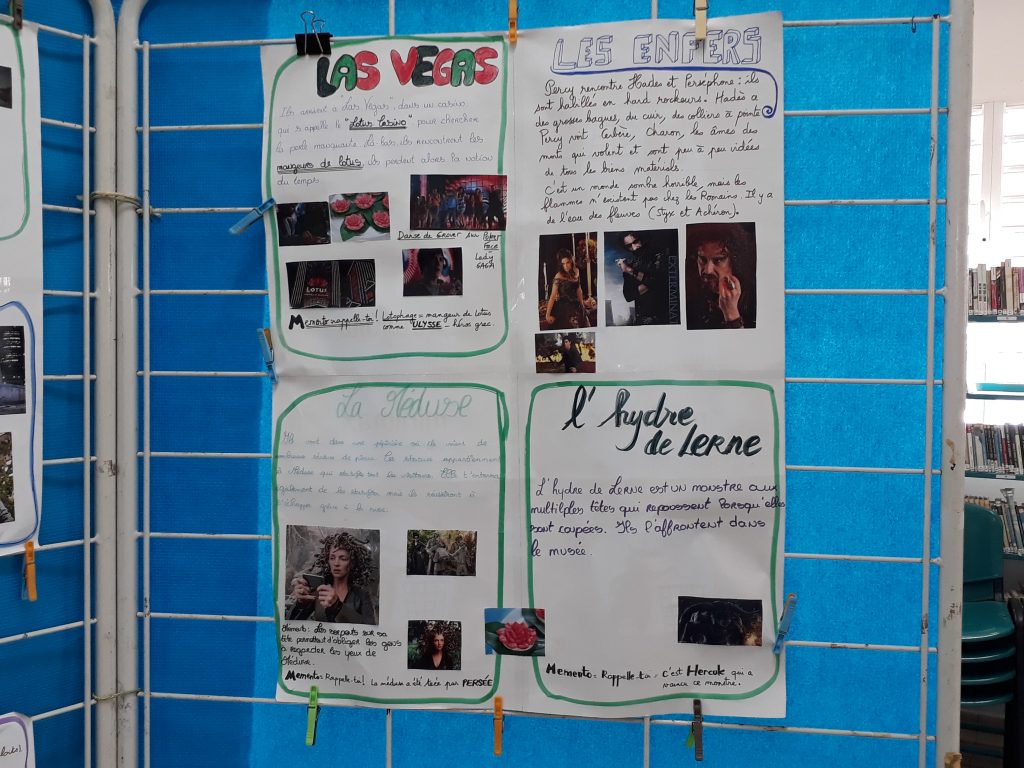 LAS VEGAS
Ils arrivent à "Las Vegas", dans un casino
qui s'appelle le "Lotus Casino" pour chercher
la perle manquante. Là-bas, ils rencontrent les
mangeurs de lotus, ils perdent alors la notion
du temps.
Danse de Grover sur Poker
Face
Lady
GAGA
LOTUS
Memento rappelle-toi! Lotophage = mangeur de lotus
comme "ULYSSE" - héros grec.
LES ENFERS
Percy rencontre Hadès et Perséphone : ils
sont habillés en hard rockeurs. Hadès a
des grosses bagues, du cuir, des colliers à pointe
Percy vont Cerbère, Charon, les âmes des
morts qui volent et sont peu à peu vidées
de tous les biens matériels.
C'est un monde sombre horrible, mais les
flammes n'existent pas chez les Romains. Il y a
de l'eau des fleuves (Styx et Achéron).
La Méduse
Ils sont dans une pépinière où ils
statues de pierre. Ces statues appartiennent
à Méduse qui
également de les
s'échapper grâce à
Memento: Les serpents sur sa
tête permettent d'obliger les gens
à regarder les yeux de
Méduse.
Memento: Rappelle-toi! La méduse a été tuée par PERSÉE
l'hydre
de Lerne
L'hydre de Lerne est un monstre aux
multilples têtes qui repoussent lorsqu'elles
sont coupées. Ils l'affrontent dans
le musée.
Memento: Rappelle-toi, c'est Hercule qui a
vaincu ce monstre.